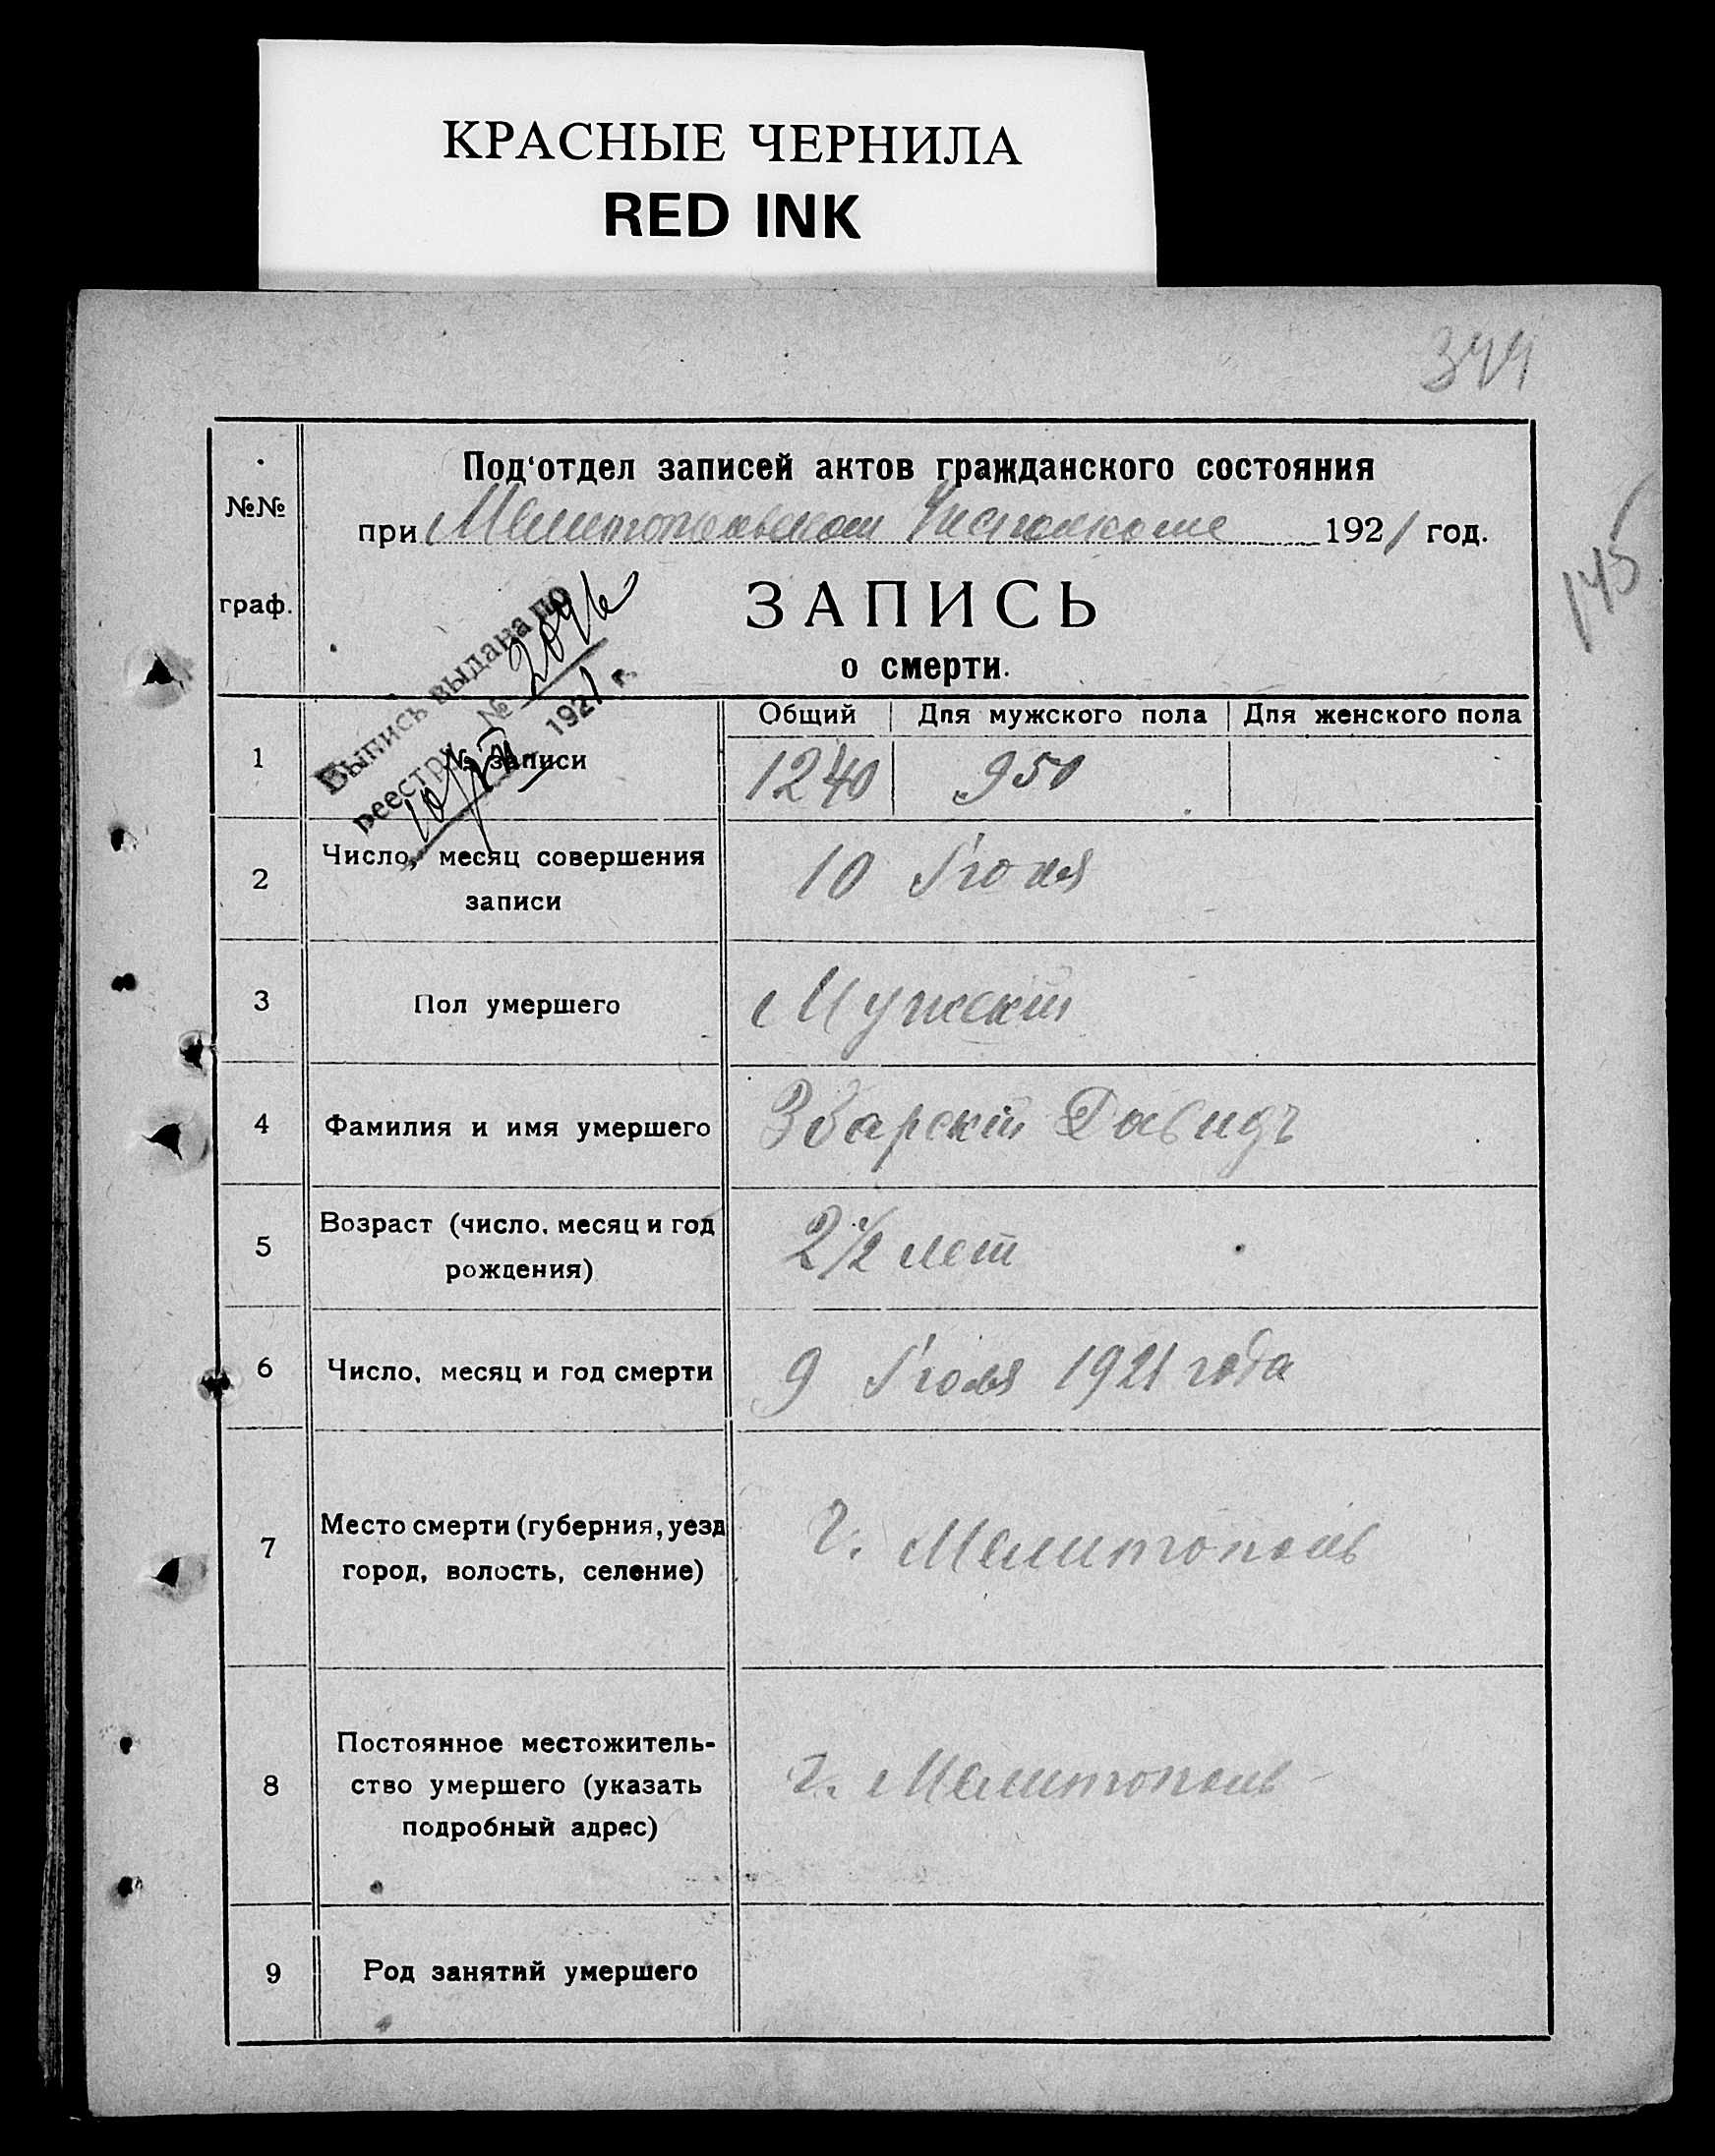 КРАСНЫЕ ЧЕРНИЛА
RED INK
344
145
№№
граф.
Под‘отдел записей актов гражданского состояния
при Мелитопольском Исполкоме 1921 год.
ЗАПИСЬ
о смерти.
Выпись выдана по
реестру № 2096
10/VII 1921 г.
Общий Для мужского пола Для женского пола
1 № записи 1240 950
2 Число, месяц совершения
записи
10 Июля
3 Пол умершего Мужскій
4 Фамилия и имя умершего Збарскій Давидъ
5 Возраст (число, месяц и год
рождения)
2 1/2 лет
6 Число, месяц и год смерти 9 Июля 1921 года
7 Место смерти (губерния, уезд
город, волость, селение)
г. Мелитополь
8 Постоянное местожитель-
ство умершего (указать
подробный адрес)
г. Мелитополь
9 Род занятий умершего